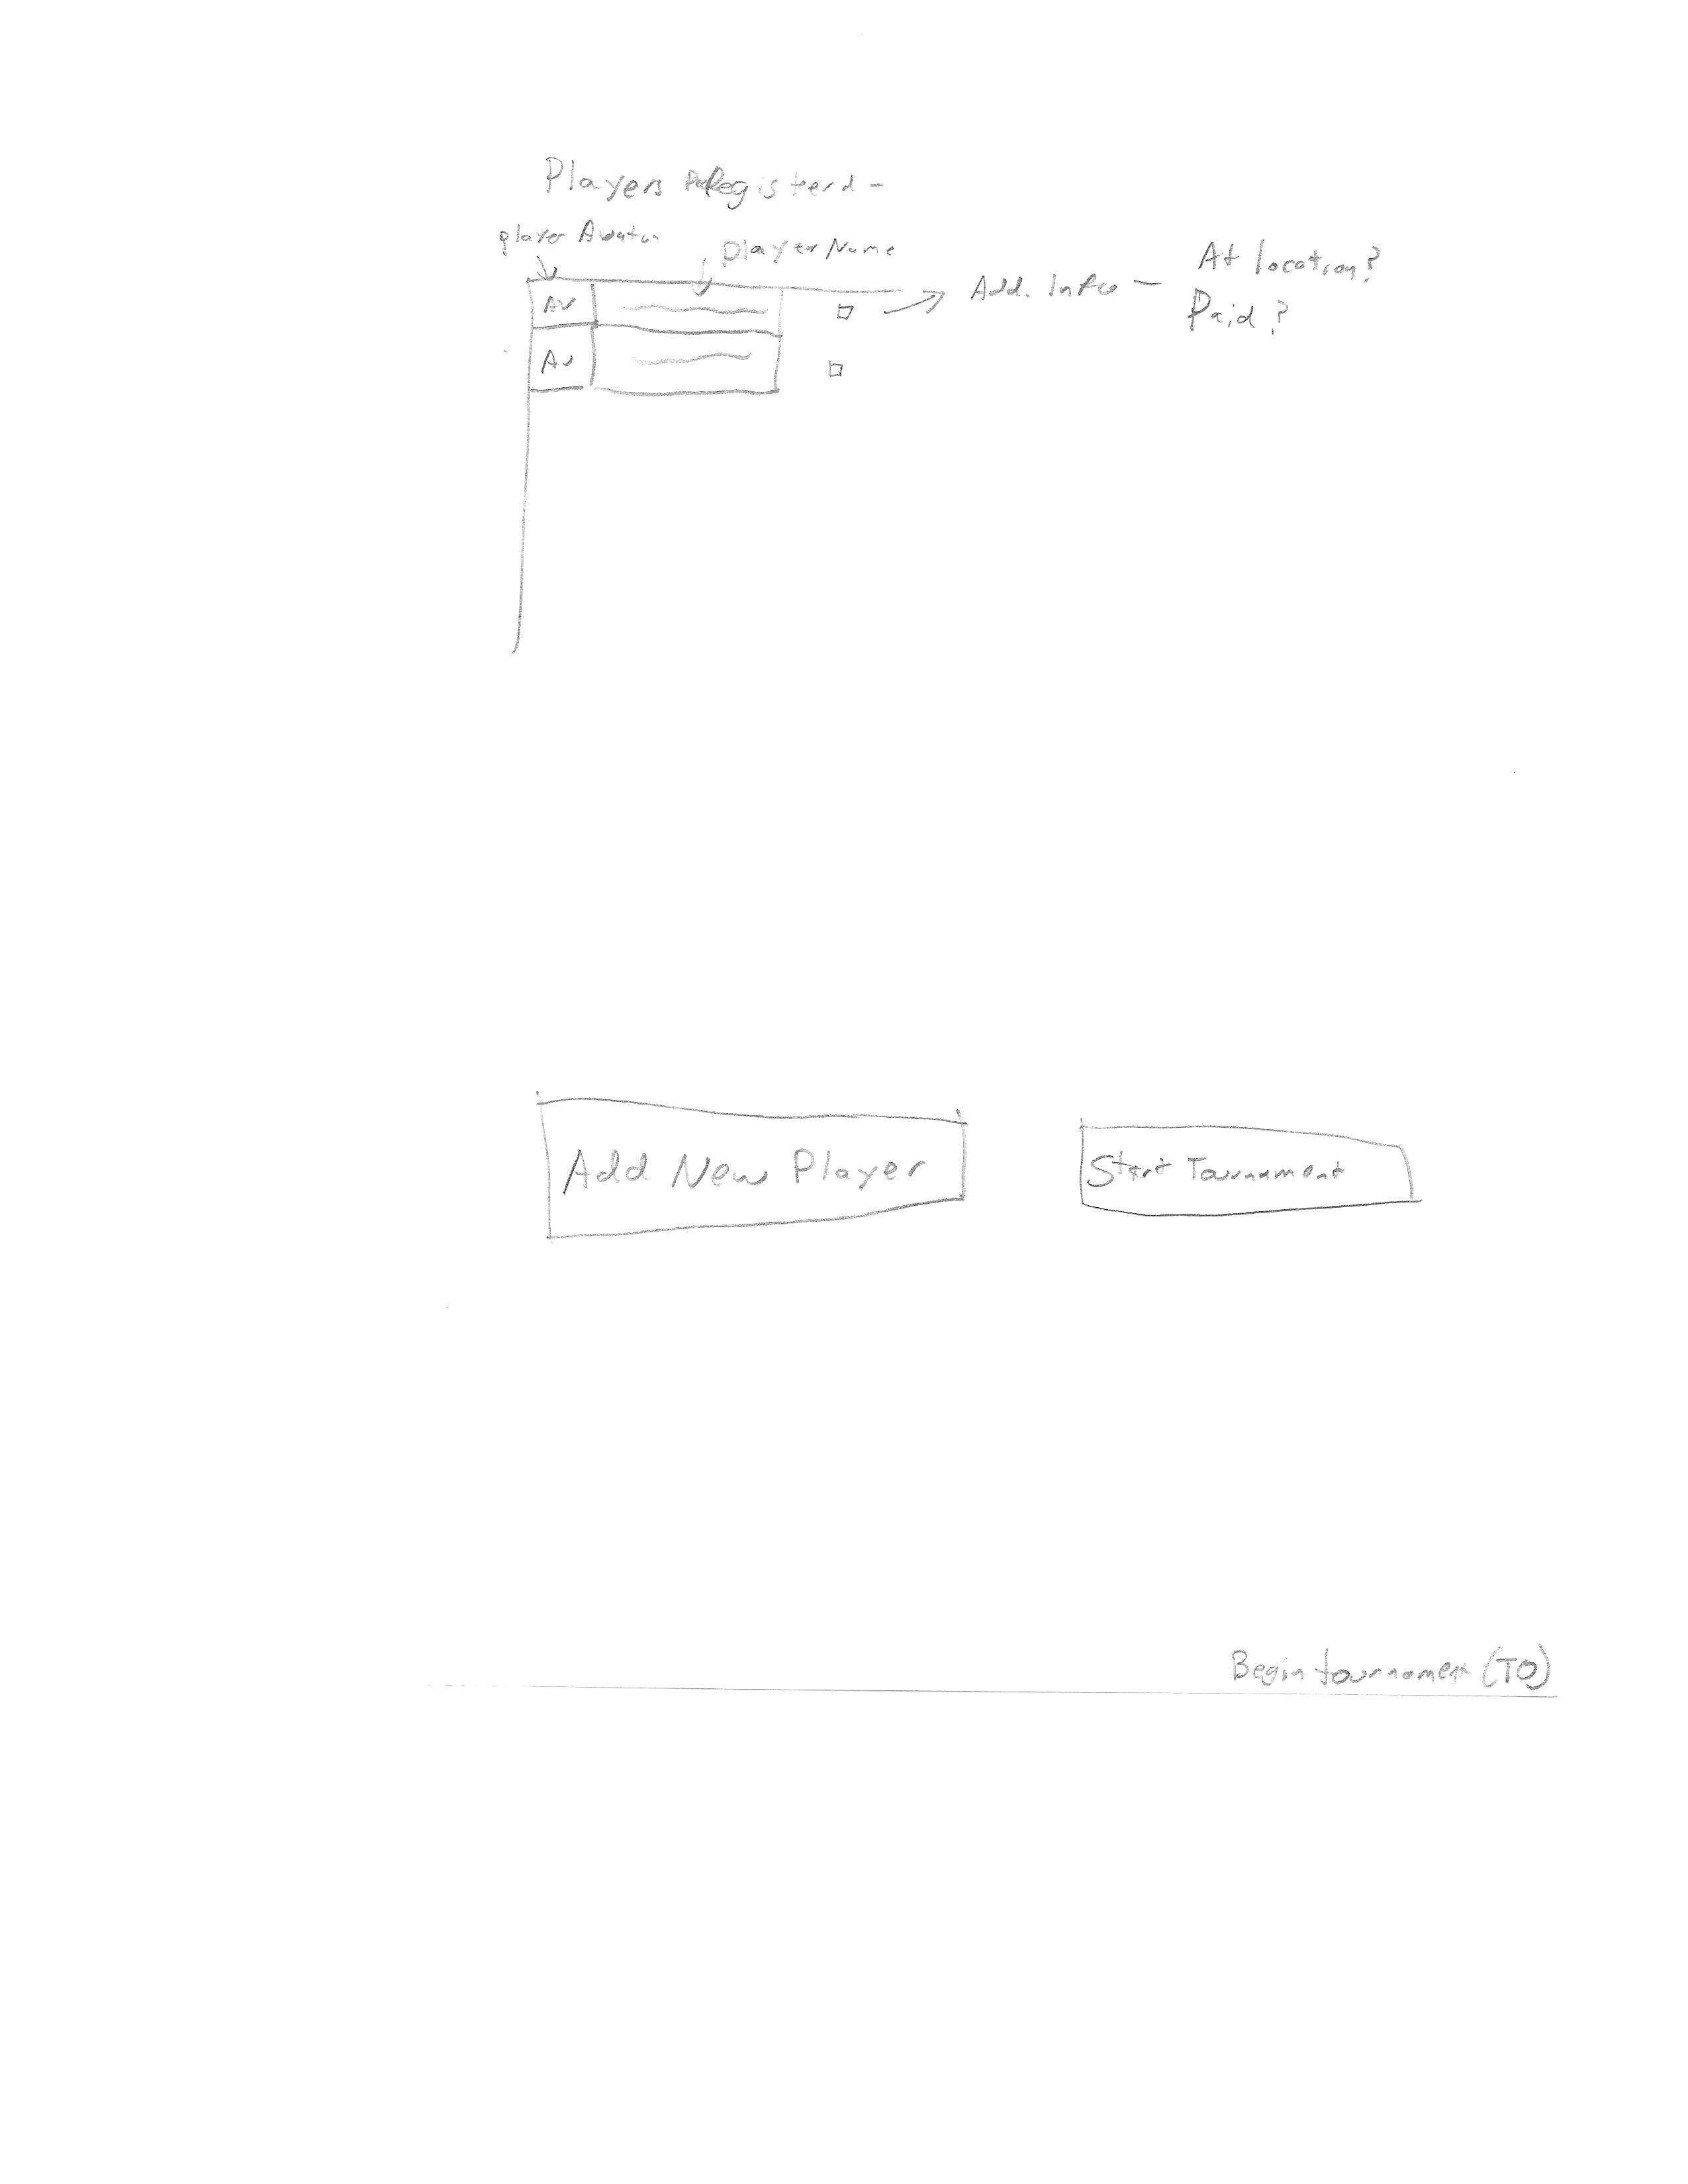 Players Registerd -
player Avatar
Player Name
At location?
Add. Info -
Paid?
AV
AV
Add New Player
Start Tournament
Begin tournament (TO)